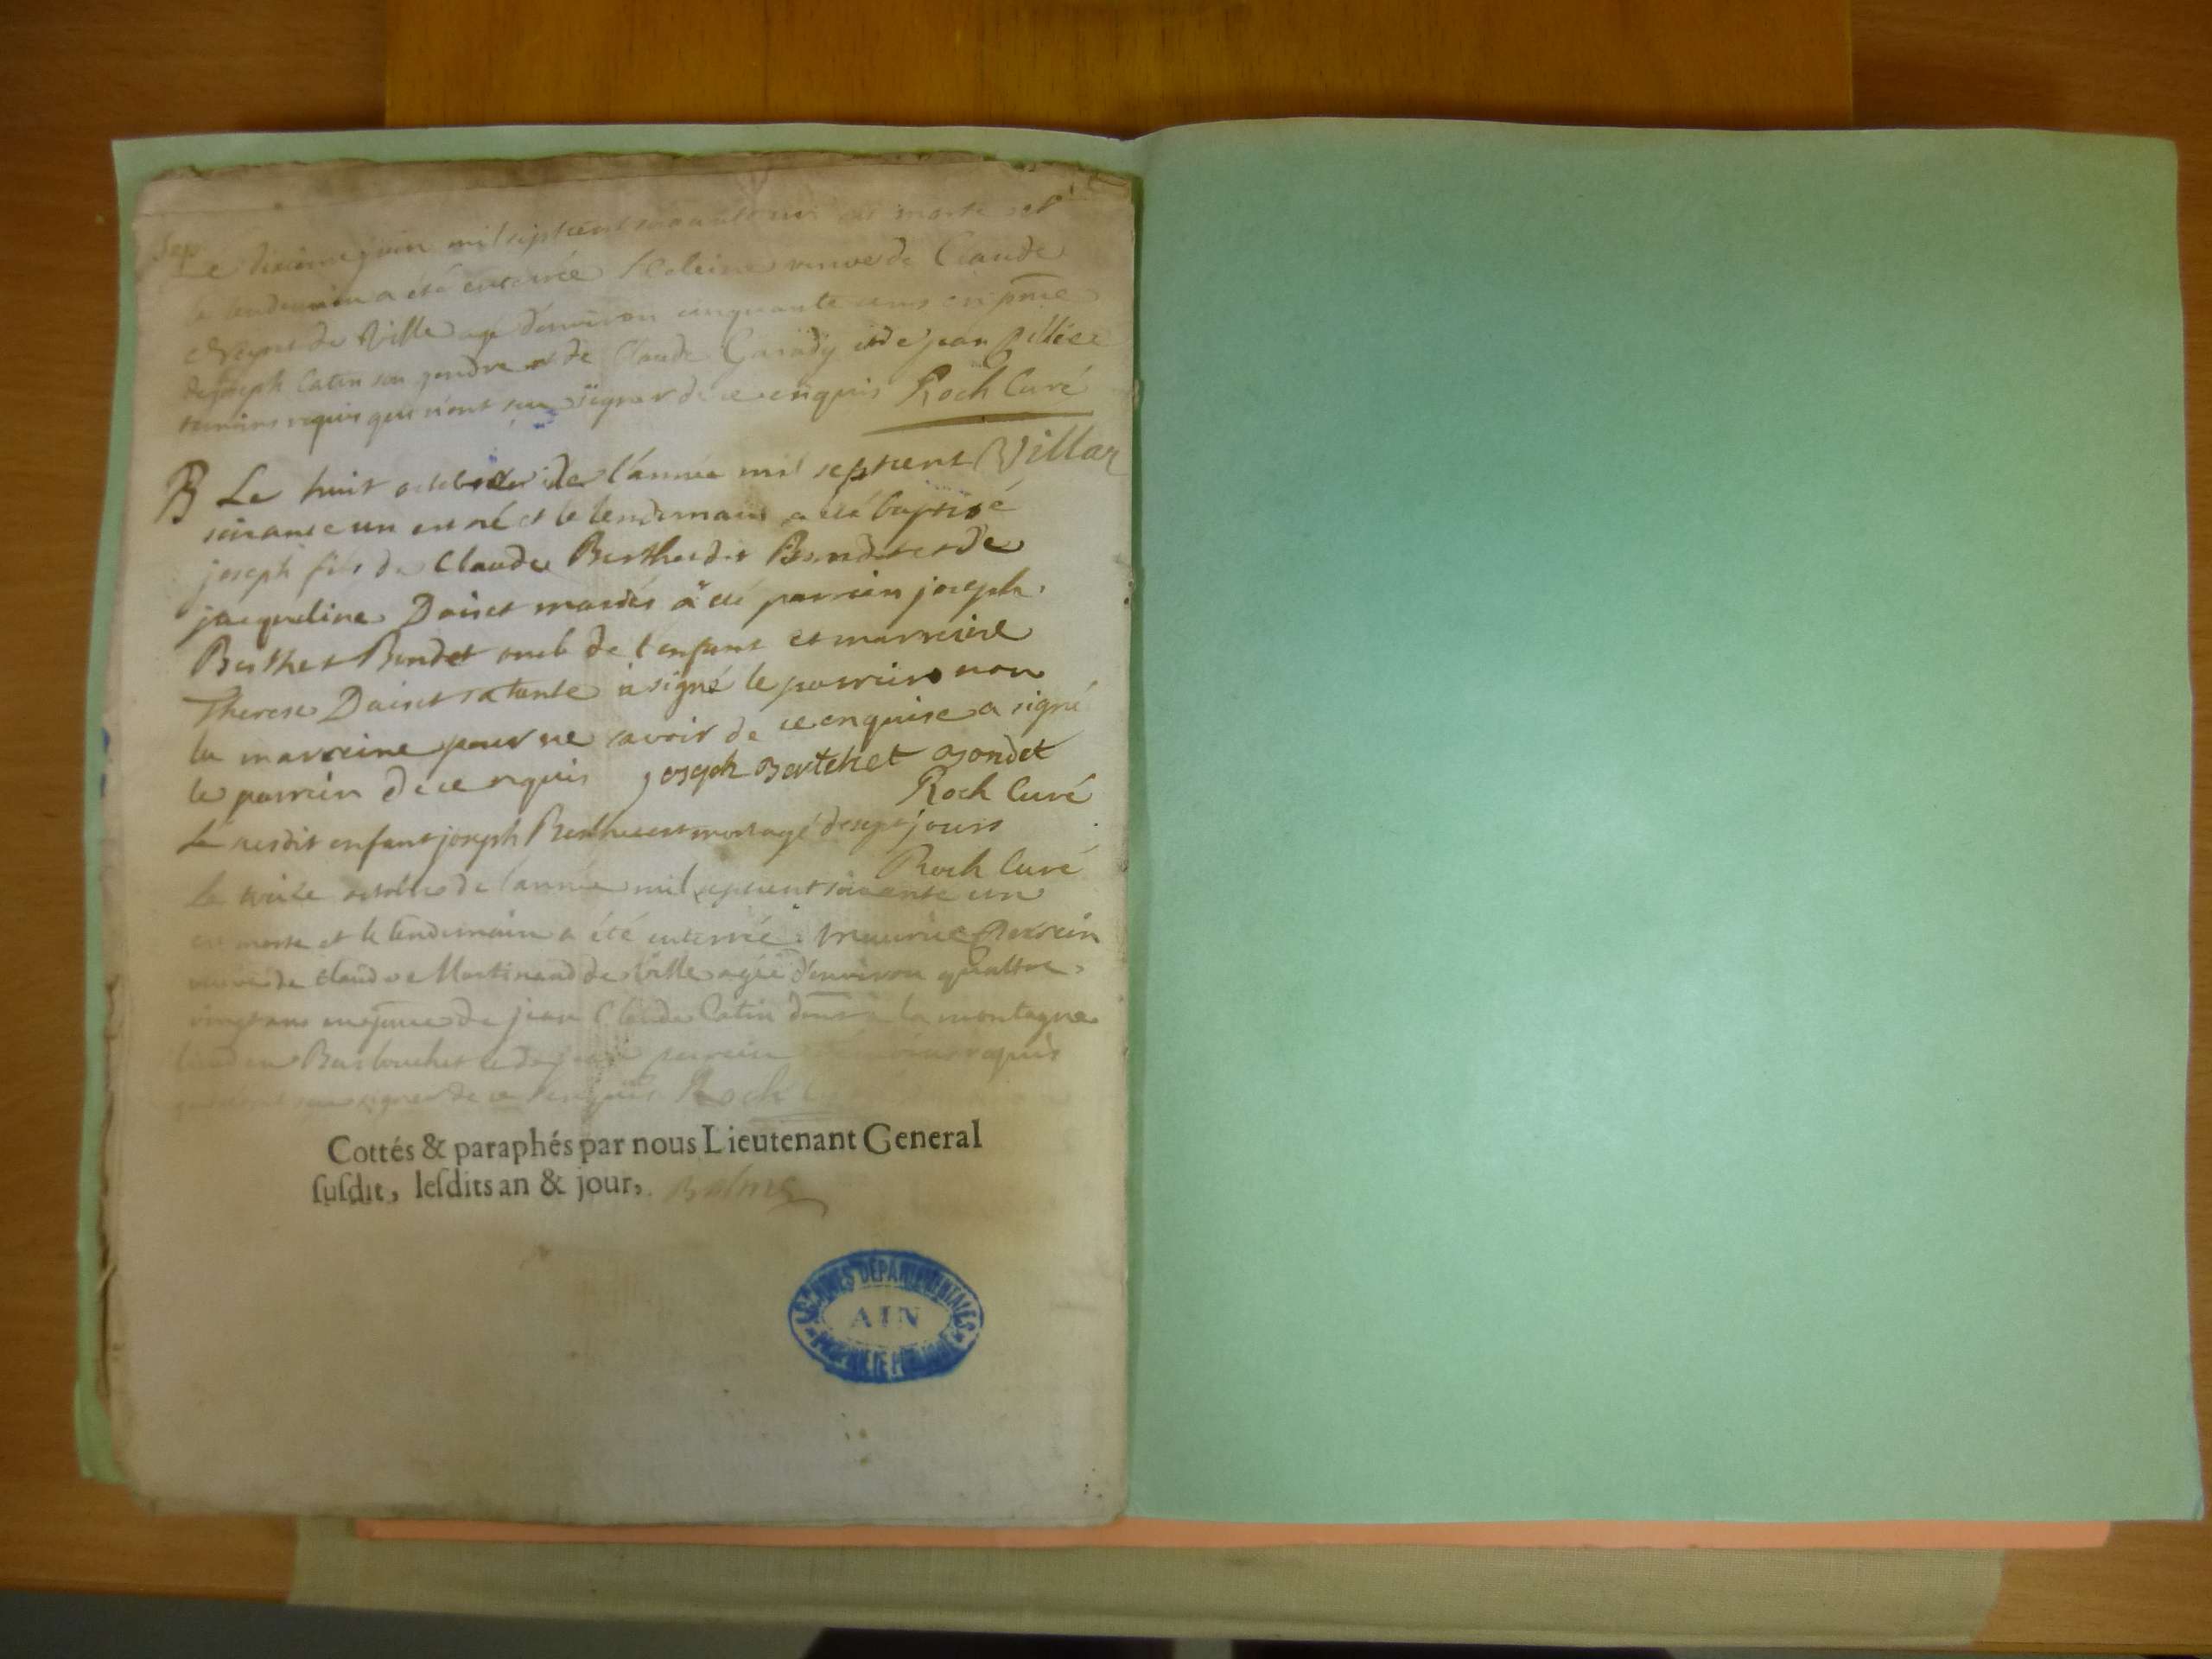 Sep
Le dixieme juin mil sept cent soixante un est morte et
le lendemain a été enterrée veuve de Claude
de Ville agé d'environ cinquante ans en pñce
de joseph Catin son gendre et de Claude Garady et de jean
temoins requis qui n'ont sçu signer de ce enquis Roch Curé
B Le huit octobre de l'année mil sept cent Villar
soixante un est né et le lendemain a été baptisé
joseph fils de Claude Berthet dit Bondet et de
jacqueline Doinet mariés a été parrein joseph
Berthet Bondet oncle de l'enfant et marreine
Therese Doinet sa tante a signé le parrein non
la marreine pour ne savoir de ce enquise a signé
le parrein de ce requis joseph Bertehet Bondet
Roch Curé
Le susdit enfant joseph Berthet est mort agé de sept jours
Roch Curé
Le treize octobre de l'année mil sept cent soixante un
est morte et le lendemain a été enterrée Maurise Perrein
veuve de Claude Martinand de Ville agée d'environ quattre
vingt ans en pñce de jean Claude Catin la montagne
Bouchet et de parrein requis
signer de ce enquis Roch
Cottés & paraphés par nous Lieutenant General
ſuſdit, leſdits an & jour, Balme
ARCHIVES DÉPARTEMENTALES
AIN
PROPRIÉTÉ PUBLIQUE